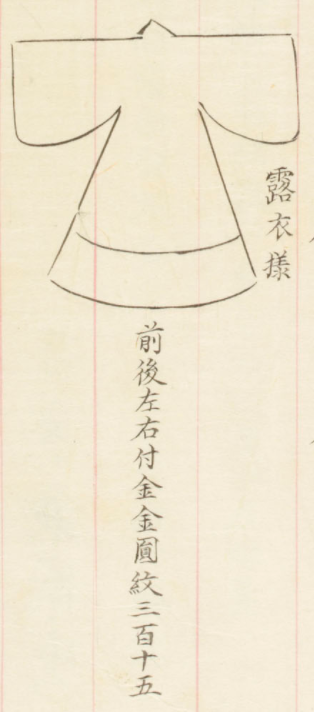 露衣㨾
前後左右付金金圎紋三百十五